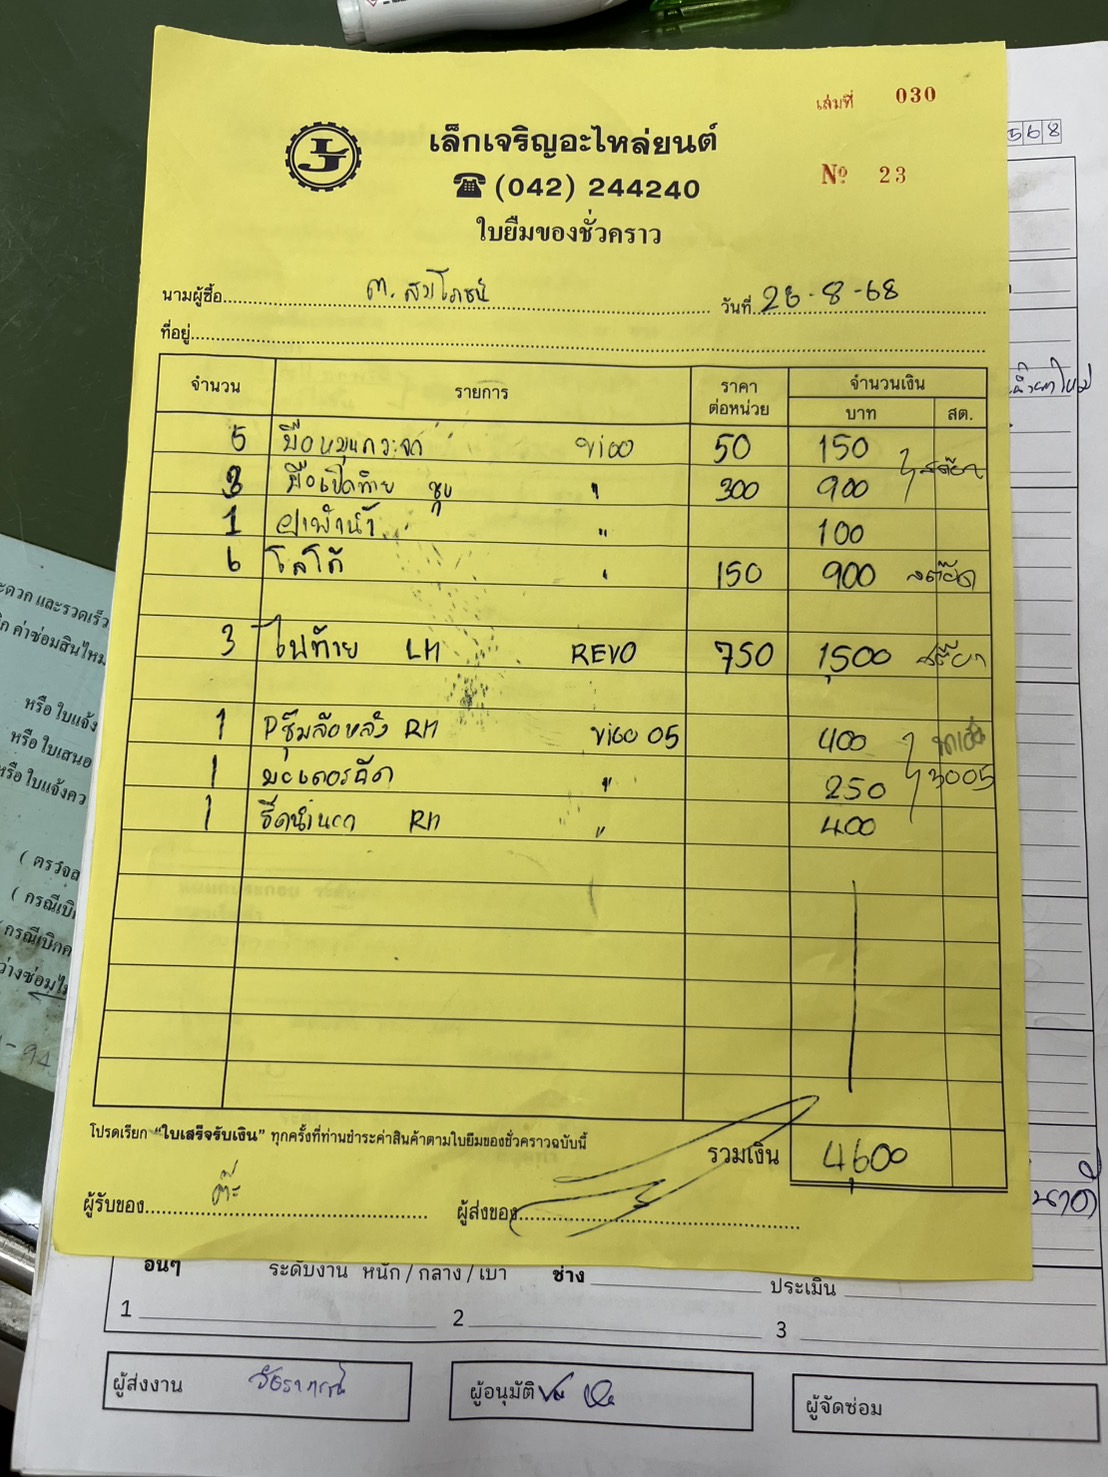 เล่มที่ 030
เล็กเจริญอะไหล่ยนต์
(042) 244240
№ 23
ใบยืมของชั่วคราว
นามผู้ซื้อ วันที่ 25-8-68
ที่อยู่
จำนวน รายการ ราคาต่อหน่วย จำนวนเงิน
บาท สต.
5 มือหมุนกระจก VIGO 50 150
3 มือเปิดท้าย ชุบ " 300 900 สต๊อก
1 ฝาพักน้ำ " 100
6 โลโก้ " 150 900 สต๊อก
3 ไฟท้าย LH REVO 750 1,500 สต๊อก
1 Pซุ้มล้อหลัง RH VIGO 05 400
1 มอเตอร์ฉีด " 250 3005
1 RH " 400
โปรดเรียก "ใบเสร็จรับเงิน" ทุกครั้งที่ท่านชำระค่าสินค้าตามใบยืมของชั่วคราวฉบับนี้
รวมเงิน 4,600
ผู้รับของ ผู้ส่งของ
568
หรือ ใบแจ้ง
หรือ ใบเสนอ
หรือ ใบแจ้งคว
อื่นๆ ระดับงาน หนัก / กลาง / เบา ช่าง ประเมิน
1 2 3
ผู้ส่งงาน ผู้อนุมัติ ผู้จัดซ่อม